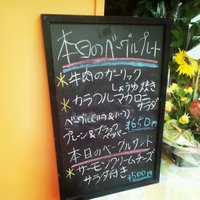 本日のベーグルプレート
★牛肉のガーリック
しょうゆ焼き
★カラフルマカロニ
サラダ
プレーン&ブラック
ペッパー
¥650円
本日のベーグルサンド
★サーモンクリームチーズ
サラダ付き ¥500円